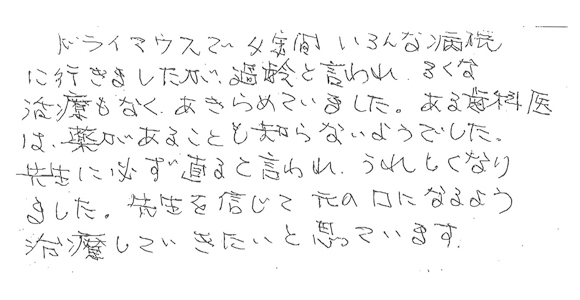 ドライマウスで 4年間 いろんな病院
に行きましたが、過齢と言われ、ろくな
治療もなく、あきらめていました。ある歯科医
は、薬があることも知らないようでした。
先生に必ず直ると言われ、うれしくなり
ました。先生を信じて 元の口になるよう
治療していきたいと思っています。